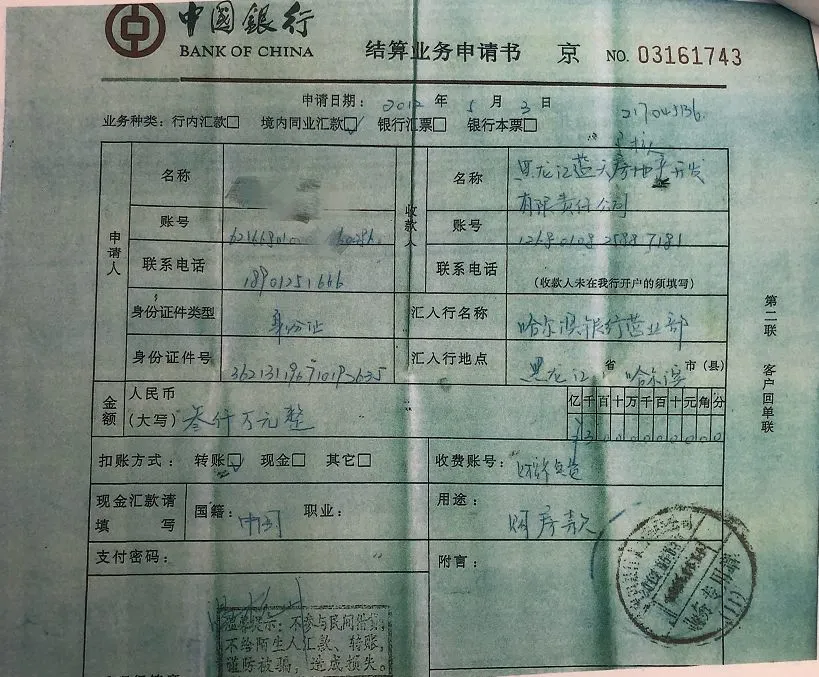 中國銀行
BANK OF CHINA
结算业务申请书 京 NO. 03161743
申请日期: 2012 年 5 月 3 日
业务种类: 行内汇款□ 境内同业汇款☑ 银行汇票□ 银行本票□
申请人
名称
账号
联系电话 18901251666
身份证件类型 身份证
身份证件号
收款人
名称 黑龙江蓝天房地产开发
有限责任公司
账号
联系电话
(收款人未在我行开户的须填写)
汇入行名称 哈尔滨银行营业部
汇入行地点 黑龙江 省 哈尔滨 市(县)
金额
人民币
(大写) 叁仟万元整
亿千百十万千百十元角分
扣账方式: 转账☑ 现金□ 其它□
收费账号:
现金汇款请填写
国籍: 中国 职业:
用途:
购房款
支付密码:
附言:
温馨提示: 不参与民间借贷,
不给陌生人汇款、转账,
谨防被骗, 造成损失。
第二联 客户回单联